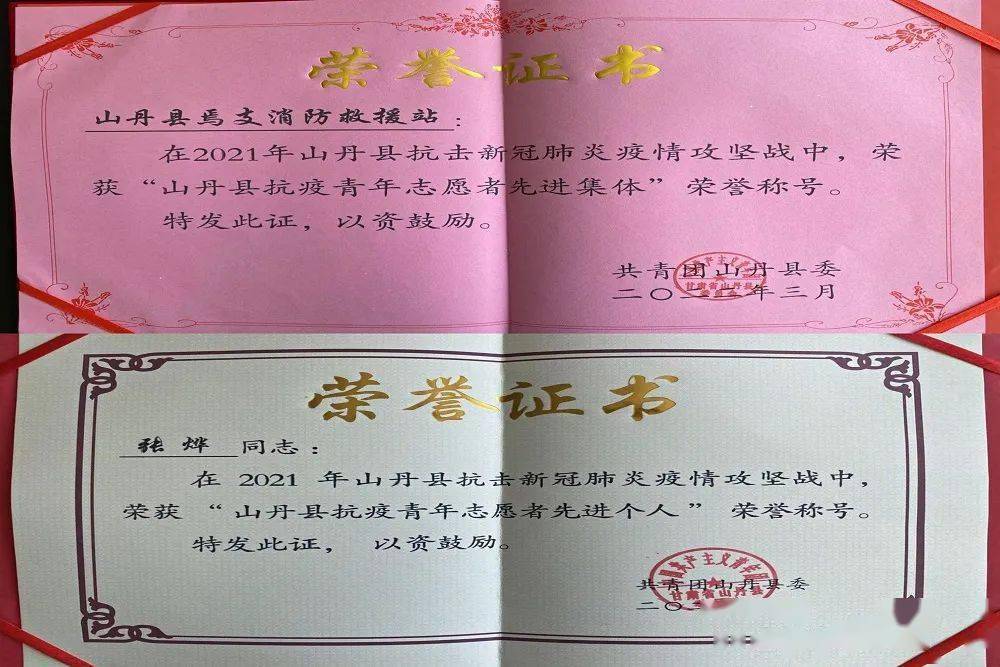 荣誉证书
山丹县焉支消防救援站：
在2021年山丹县抗击新冠肺炎疫情攻坚战中，荣
获“山丹县抗疫青年志愿者先进集体”荣誉称号。
特发此证，以资鼓励。
共青团山丹县委
二〇二二年三月
甘肃省山丹县
委员会
荣誉证书
张烨 同志：
在 2021 年山丹县抗击新冠肺炎疫情攻坚战中，
荣获“山丹县抗疫青年志愿者先进个人”荣誉称号。
特发此证，以资鼓励。
中国共产主义青年团
共青团山丹县委
甘肃省山丹县
二〇二